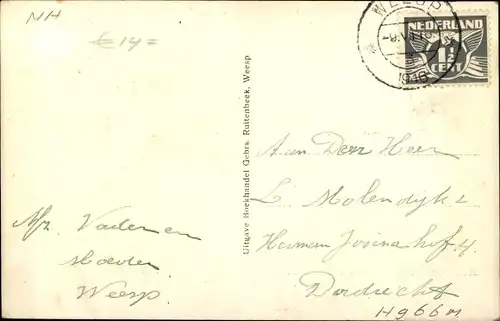 NH
€ 14=
WEESP
1946
NEDERLAND
1½
CENT
Uitgave Boekhandel Gebrs. Ruitenbeek, Weesp
Aan Den Heer
L. Molendijk
Herman Josinahof 4
Dordrecht
Afz. Vader en
Moeder
Weesp
Hg66m